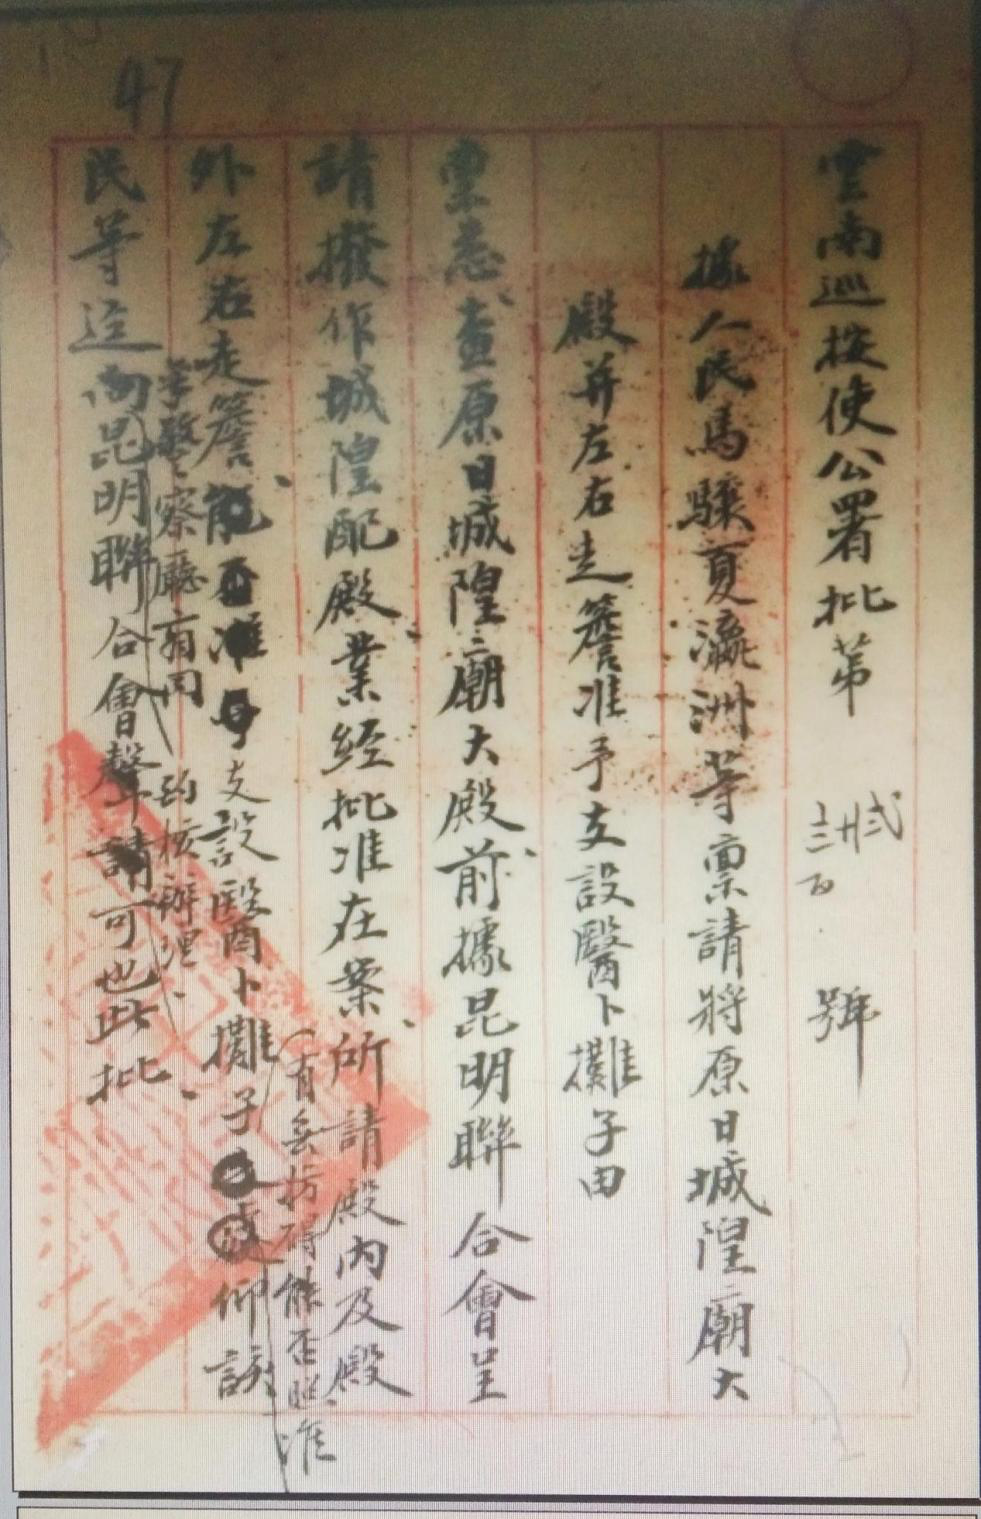 47
雲南巡按使公署批第 三百廿弍 號
據人民馬驤夏瀛洲等禀請將原日城隍廟大
殿并左右走簷准予支設醫卜攤子由
禀悉查原日城隍廟大殿前據昆明聯合會呈
請撥作城隍配殿業經批准在案所請殿內及殿
有無妨碍能否照准
外左右走簷能否准予支設醫卜攤子仰該
警察廳 酌核辦理
民等逕向昆明聯合會聲請可也此批